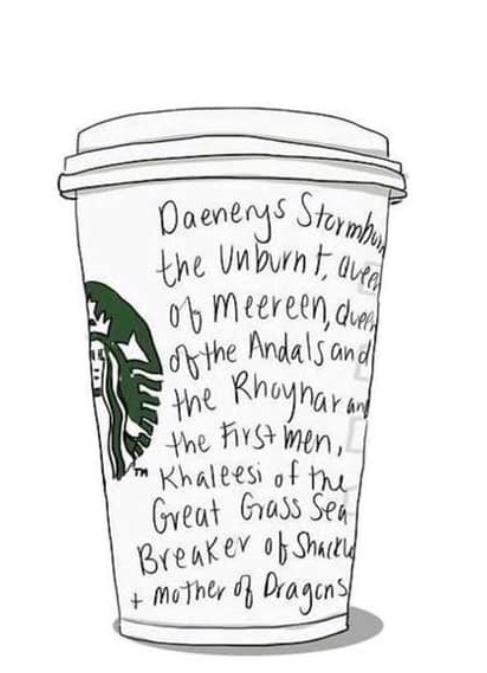 Daenerys Stormbur
the Unburnt, Queen
of Meereen, Queen
of the Andals and
the Rhoynar and
the First Men,
TM Khaleesi of the
Great Grass Sea
Breaker of Shackle
+ mother of Dragons